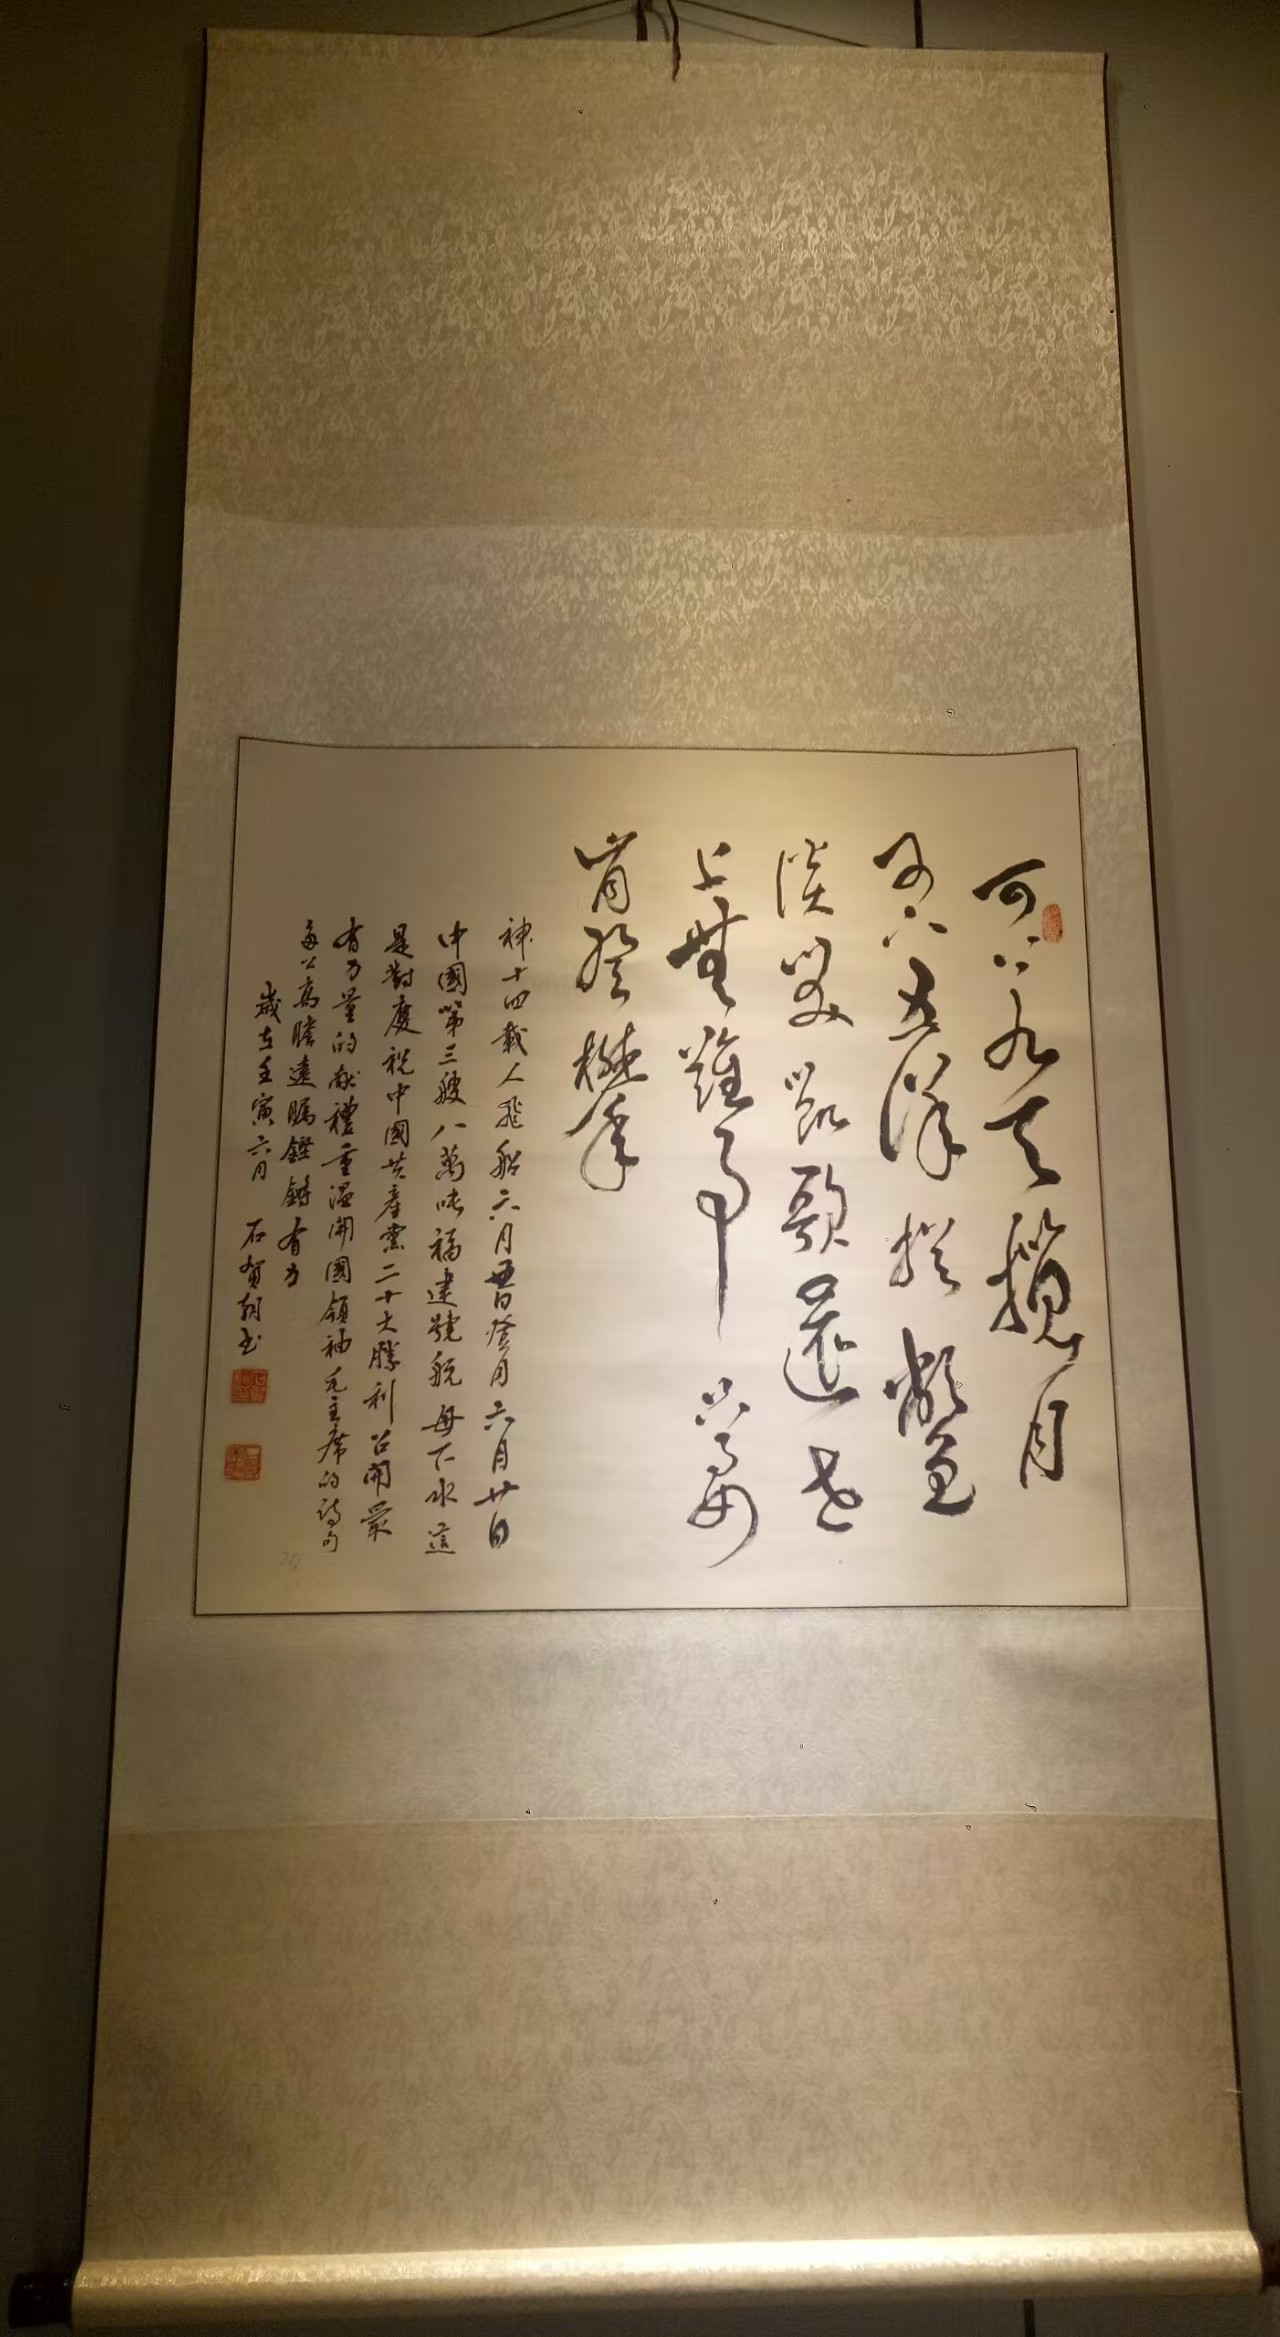 可上九天揽月
可下五洋捉鳖
谈笑凯歌還世
上無難事只要
肯登攀
神十四載人飛船六月五日登月六月廿日
中國第三艘八萬吨福建號航母下水這
是對慶祝中國共產黨二十大勝利召開最
有力量的献禮重温開國領袖毛主席的詩句
每公高瞻遠瞩鏗鏘有力
歲在壬寅六月 石賀朝書